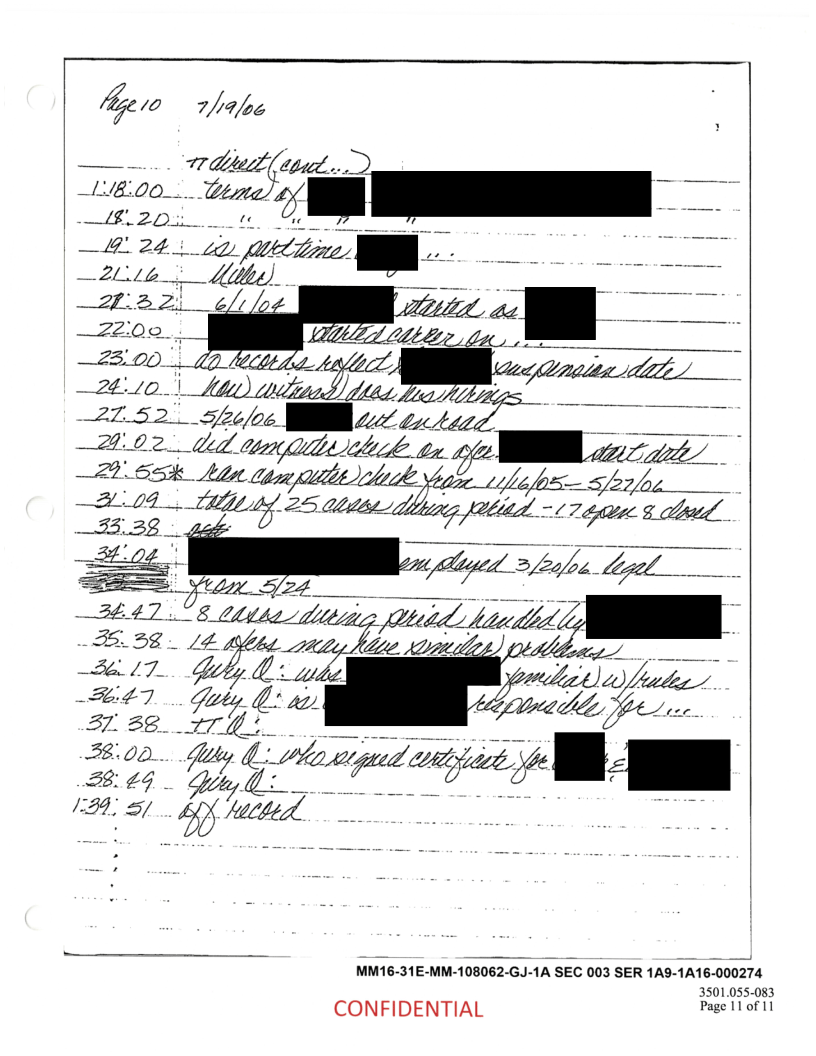 Page 10 7/19/06
π direct (cont...)
1:18:00 terms of
18:20 " " " "
19:24 is part time ...
21:16
21:32 6/1/04 started as
22:00 started career on ...
23:00 do records reflect suspension date
24:10 how witness does his hirings
27:52 5/26/06 out on road
29:02 did computer check on ofcr. start date
29:55* ran computer check from 11/16/05 – 5/27/06
31:09 total of 25 cases during period - 17 open 8 closed
33:38
34:04 employed 3/20/06 legal
from 5/24
34:47 8 cases during period handled by
35:38 14 ofcrs may have similar problems
36:17 Jury Q: was familiar w/rules
36:47 Jury Q: is responsible for ...
37:38 π Q:
38:00 Jury Q: who signed certificate for &
38:49 Jury Q:
1:39:51 off record
MM16-31E-MM-108062-GJ-1A SEC 003 SER 1A9-1A16-000274
3501.055-083
Page 11 of 11
CONFIDENTIAL